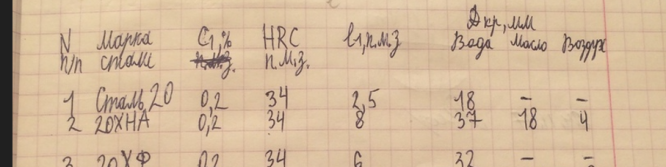 Dкр, мм
N Марка C1,% HRC l1, п.м.з Вода Масло Воздух
п/п стали п.м.з. п.м.з.
1 Сталь 20 0,2 34 2,5 18 – –
2 20ХНА 0,2 34 8 37 18 4
3 20ХФ 0,2 34 6 32 –